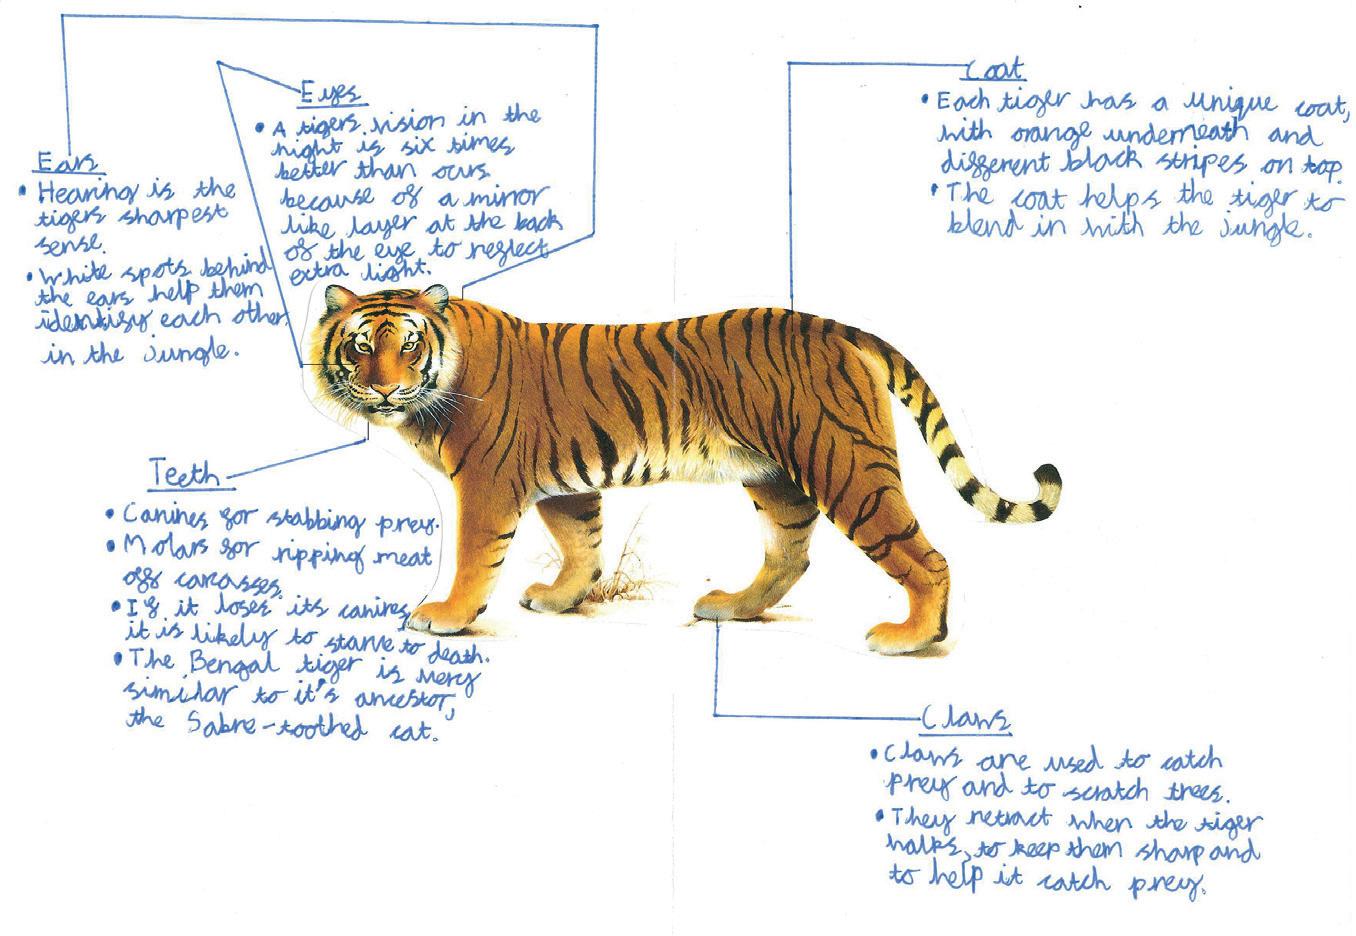 Ears
• Hearing is the
tigers sharpest
sense.
• White spots behind
the ears help them
identify each other
in the jungle.
Eyes
• A tigers vision in the
night is six times
better than ours
because of a mirror
like layer at the back
of the eye to reflect
extra light.
Coat
• Each tiger has a unique coat,
with orange underneath and
different black stripes on top.
• The coat helps the tiger to
blend in with the jungle.
Teeth
• Canines for stabbing prey.
• Molars for ripping meat
off carcasses.
• If it loses its canines,
it is likely to starve to death.
• The Bengal tiger is very
similar to it's ancestor,
the Sabre-toothed cat.
Claws
• Claws are used to catch
prey and to scratch trees.
• They retract when the tiger
walks, to keep them sharp and
to help it catch prey.